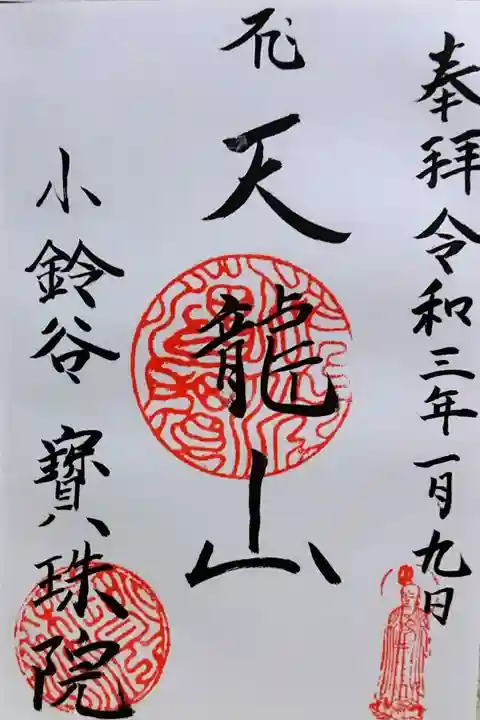 奉拜令和三年一月九日
天龍山
小鈴谷 寳珠院